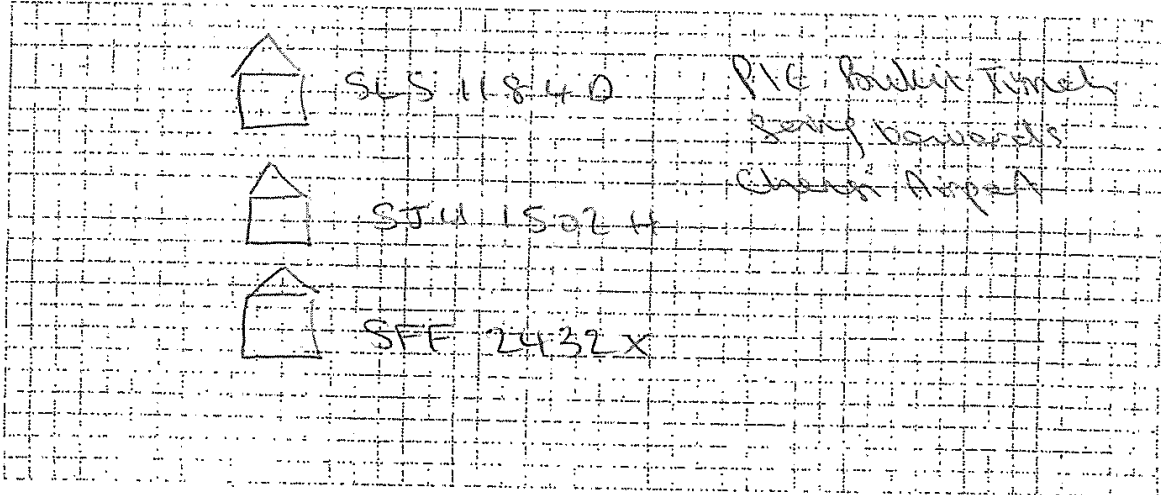 SLS 1184D
SJU 1502H
SFF 2432X
PIE Bukit Timah
going towards
Changi Airport